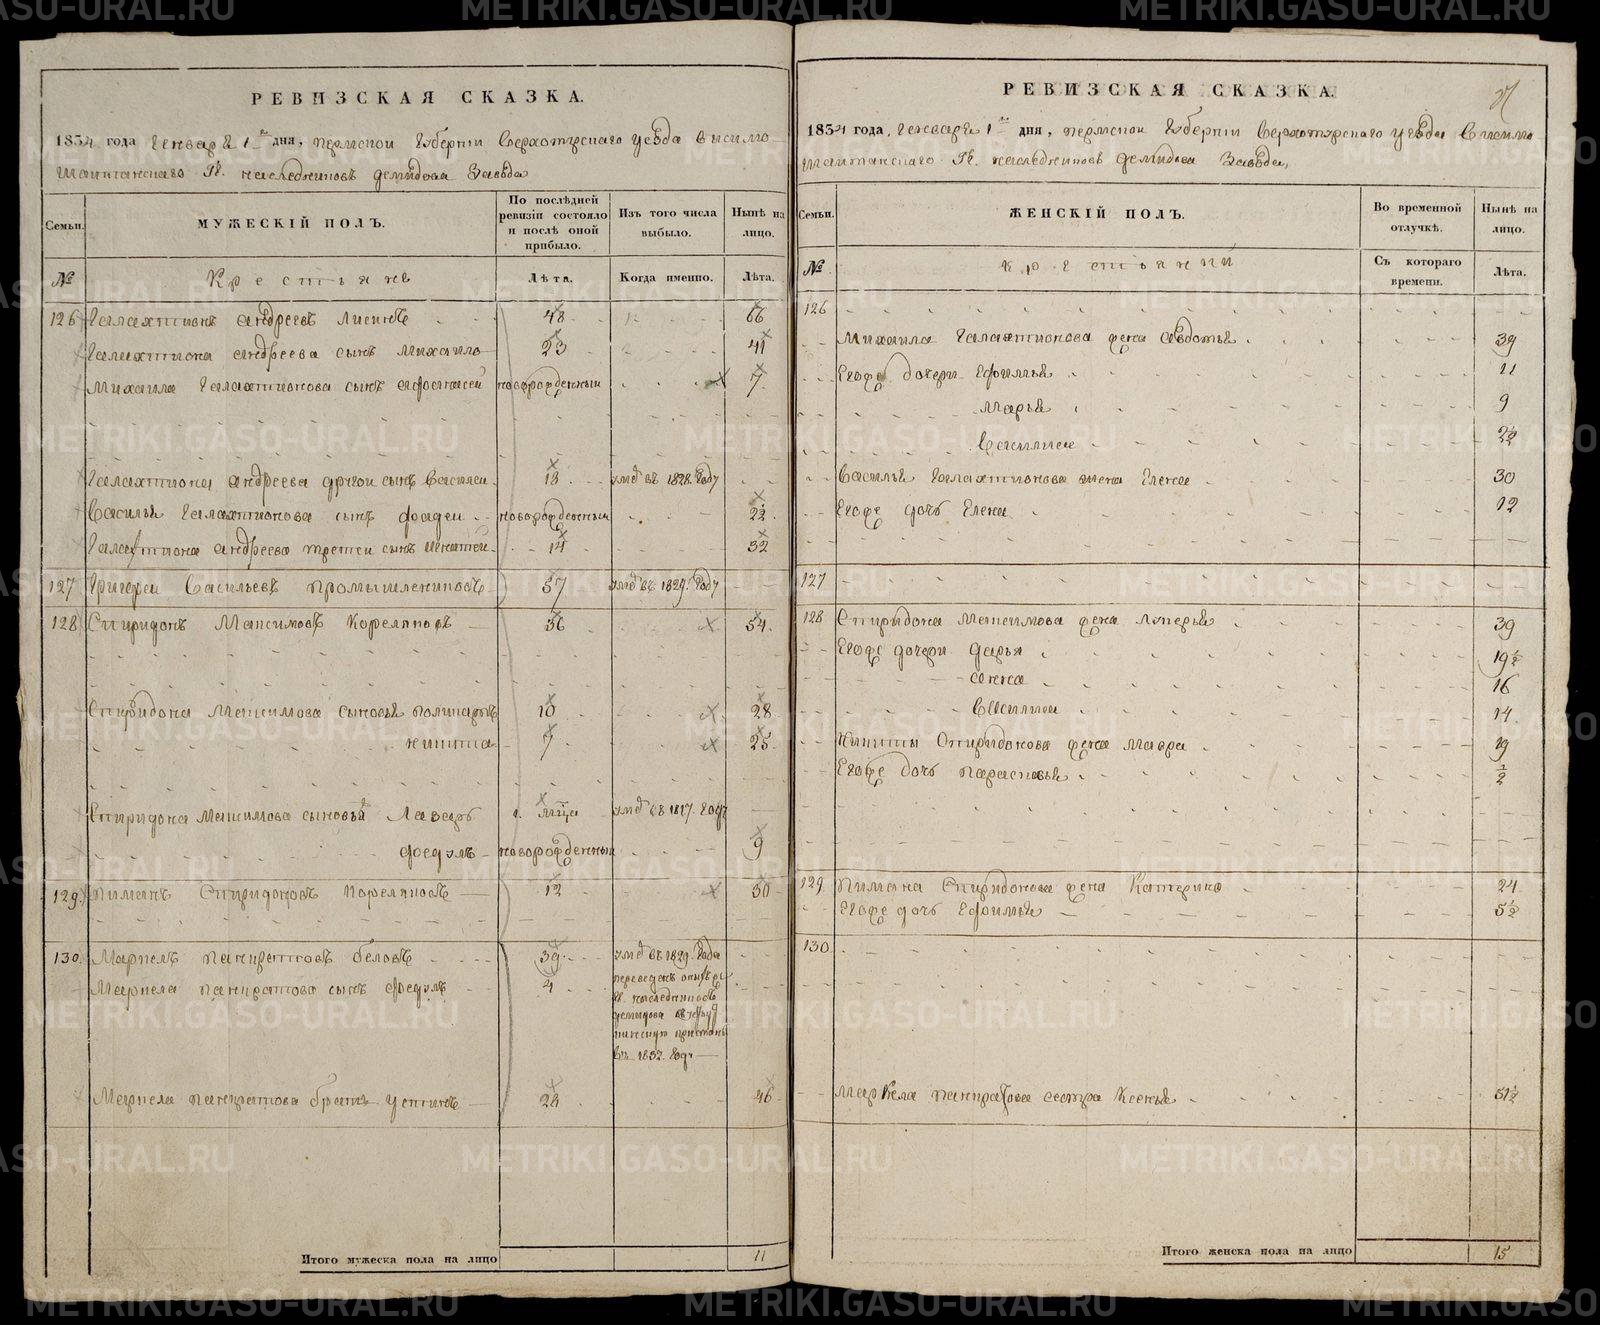 РЕВИЗСКАЯ СКАЗКА.
1834 года Генваря 1 дня, Пермской Губернии Верхотурскаго уезда Висимо
шайтанскаго Гг. наследниковъ Демидова Завода
Семьи.
МУЖЕСКІЙ ПОЛЪ.
По послѣдней ревизіи состояло и послѣ оной прибыло.
Изъ того числа выбыло.
Нынѣ на лицо.
№
Крестьяне
Лѣта.
Когда именно.
Лѣта.
126 Галахтионъ Андреевъ 48 66
Галахтиона Андреева сынъ Михайло 23 41
Михаила Галахтионова сынъ Афонасей новорожденный 7
Галахтиона Андреева другой сынъ Василей 13 умре въ 1828. Году
Василья Галахтионова сынъ Фадей новорожденный 2½
Галахтиона Андреева третей сынъ Игнатей 14 32
127 Григорей Васильевъ Промышленниковъ 57 умре въ 1829. Году
128 Спиридонъ Максимовъ Кореляковъ 36 54
Спиридона Максимова сыновья Поликарпъ 10 28
Никита 7 25
Спиридона Максимова сыновья Лазарь умре въ 1817. Году
Федулъ новорожденный 9
129. Пиманъ Спиридоновъ Кореляковъ 12 30
130. Маркелъ Панкратовъ Беловъ 39 умре въ 1829. Года
Маркела Панкратова сынъ Федулъ 4 переведенъ
Гг. наследниковъ
Демидова
пристань
въ 1832. Году
Маркела Панкратова братъ Устинъ 28 46
Итого мужеска пола на лицо 11
РЕВИЗСКАЯ СКАЗКА.
1834 года, Генваря 1 дня, Пермской Губернии Верхотурскаго уезда Висимо
шайтанскаго Гг. наследниковъ Демидова Завода,
Семьи.
ЖЕНСКІЙ ПОЛЪ.
Во временной отлучкѣ.
Нынѣ на лицо.
№
Крестьянки
Съ котораго времени.
Лѣта.
126
Михаила Галахтионова жена Авдотья 39
Егоже дочери Ефимья 11
Марья 9
Василиса 2½
Василья Галахтионова жена Елена 30
Егоже дочь Елена 12
127
128 Спиридона Максимова жена Лукерья 39
Егоже дочери Дарья 19½
Анна 16
Василиса 14
Никиты Спиридонова жена Мавра 19
Егоже дочь Парасковья ½
129. Пимана Спиридонова жена Катерина 24
Егоже дочь Ефимья 5½
130
Маркела Панкратова сестра Ксенья 31½
Итого женска пола на лицо 15
METRIKI.GASO-URAL.RU